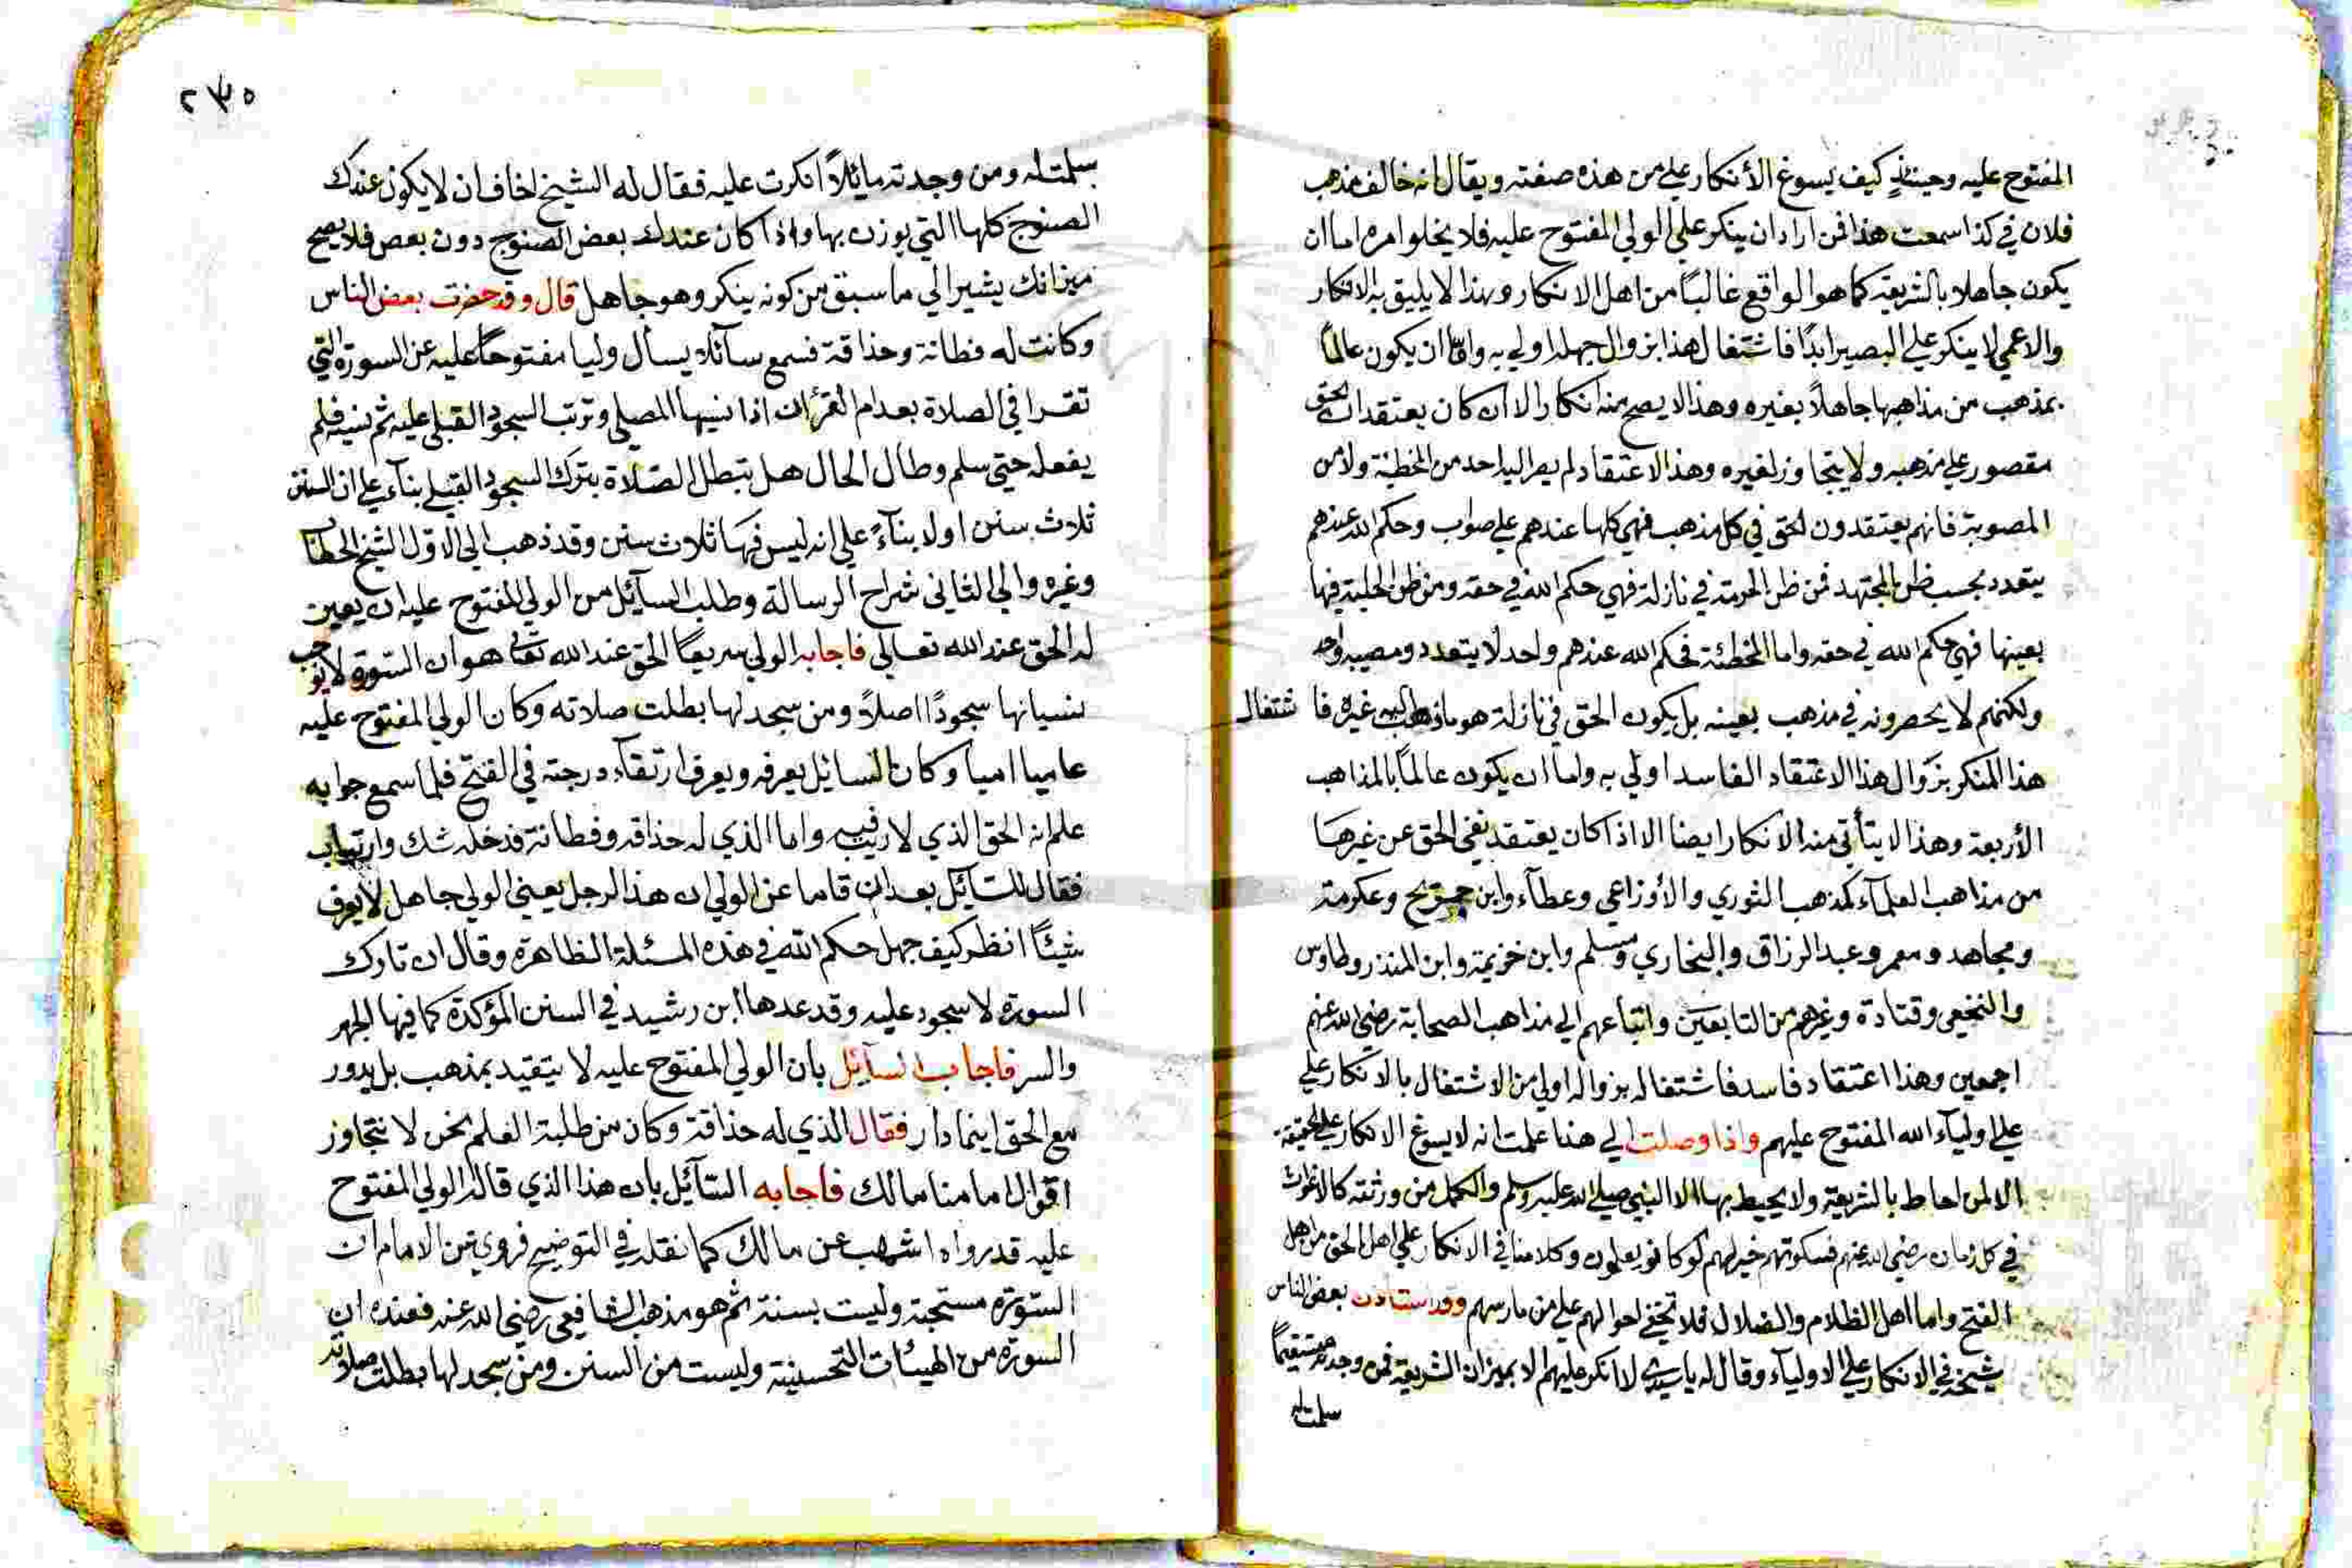 المفتوح عليه وحينئذ كيف يسوغ الأنكار علي من هذه صفته ويقال انه خالف مذهب
فلان في كذا اسمعت هذا فمن اراد ان ينكر علي الولي المفتوح عليه فلا يخلوا مره اما ان
يكون جاهلا بالشريعة كما هو الواقع غالبًا من اهل الانكار وهذا لا يليق به الانكار
والاعمي لا ينكر علي البصير ابدًا فاشتغال هذا بزوال جهله اولي به واما ان يكون عالمًا
بمذهب من مذاهبها جاهلاً بغيره وهذا لا يصح منه انكار الا ان كان يعتقد ان الحق
مقصور علي مذهبه ولا يتجاوز لغيره وهذا الاعتقاد لم يصر اليه احد من المخطئة ولا من
المصوبة فانهم يعتقدون الحق في كل مذهب فهي كلها عندهم علي صواب وحكم الله عندهم
يتعدد بحسب ظن المجتهد فمن ظن الحرمة في نازلة فهي حكم الله في حقه ومن ظن الحلية فيها
بعينها فهي حكم الله في حقه واما المخطئة فحكم الله عندهم واحد لا يتعدد ومصيبه واحد
ولكنهم لا يحصرونه في مذهب بعينه بل يكون الحق في نازلة هو ما ذهب اليه غيره فاشتغال
هذا المنكر بزوال هذا الاعتقاد الفاسد اولي به واما ان يكون عالمًا بالمذاهب
الأربعة وهذا لا يتأتي منه الانكار ايضا الا اذا كان يعتقد نفي الحق عن غيرها
من مذاهب العلمآء كمذهب الثوري والأوزاعي وعطآء وابن جريج وعكرمة
ومجاهد ومعمر وعبد الرزاق والبخاري ومسلم وابن خزيمة وابن المنذر وطاوس
والنخعي وقتادة وغيرهم من التابعين واتباعهم الي مذاهب الصحابة رضي الله عنهم
اجمعين وهذا اعتقاد فاسد فاشتغاله بزواله اولي من الاشتغال بالانكار علي
علي اوليآء الله المفتوح عليهم واذا وصلت الي هنا علمت انه لا يسوغ الانكار علي الحقيقة
الا لمن احاط بالشريعة ولا يحيط بها الا النبي صلي الله عليه وسلم والكمل من ورثته كالاغواث
في كل زمان رضي الله عنهم فسكوتهم خير لهم لو كانوا يعلمون وكلامنا في الانكار علي اهل الحق من اهل
الفتح واما اهل الظلام والضلال فلا تخفي احوالهم علي من مارسهم وقد استاذن بعض الناس
شيخه في الانكار علي الاوليآء وقال له يا سيدي لا انكر عليهم الا بميزان الشريعة فمن وجدته مستقيمًا
سلمت له
٢٣٥
سلمت له ومن وجدته مائلاً انكرت عليه فقال له الشيخ اخاف ان لا يكون عندك
الصنوج كلها التي يوزن بها واذا كان عندك بعض الصنوج دون بعض فلا يصح
ميزانك يشير الي ما سبق من كونه ينكر وهو جاهل قال وقد حضرت بعض الناس
وكانت له فطانة وحذاقة فسمع سآئلا يسأل وليا مفتوحًا عليه عن السورة التي
تقرا في الصلاة بعد ام القرءان اذا نسيها المصلي وترتب السجود القبلي عليه ثم نسيه فلم
يفعله حتي سلم وطال الحال هل تبطل الصلاة بترك السجود القبلي بنآء علي ان السنن
ثلاث سنن اولا بنآءً علي انه ليس فيها ثلاث سنن وقد ذهب الي الاول الشيخ الحطاب
وغيره والي الثاني شراح الرسالة وطلب السآئل من الولي المفتوح عليه ان يعين
له الحق عند الله تعالي فاجابه الولي سريعًا الحق عند الله تعالي هو ان السورة لا يوجب
نسيانها سجودًا اصلاً ومن سجد لها بطلت صلاته وكان الولي المفتوح عليه
عاميا اميا وكان السايل يعرفه ويعرف ارتقآء درجته في الفتح فلما سمع جوابه
علم انه الحق الذي لا ريب فيه واما الذي له حذاقة وفطانة فدخله شك وارتياب
فقال للسآئل بعد ان قاما عن الولي ان هذا الرجل يعني الولي جاهل لا يعرف
شيئًا انظر كيف جهل حكم الله في هذه المسئلة الظاهرة وقال ان تارك
السورة لا سجود عليه وقد عدها ابن رشيد في السنن المؤكدة كما فيها الجهر
والسر فاجاب السآئل بان الولي المفتوح عليه لا يتقيد بمذهب بل يدور
مع الحق اينما دار فقال الذي له حذاقة وكان من طلبة العلم نحن لا نتجاوز
اقوال امامنا مالك فاجابه السآئل بان هذا الذي قاله الولي المفتوح
عليه قد رواه اشهب عن مالك كما نقله في التوضيح فروي عن الامام ان
السورة مستحبة وليست بسنة ثم هو مذهب الشافعي رضي الله عنه فعنده ان
السورة من الهيئات التحسينية وليست من السنن ومن سجد لها بطلت صلاته